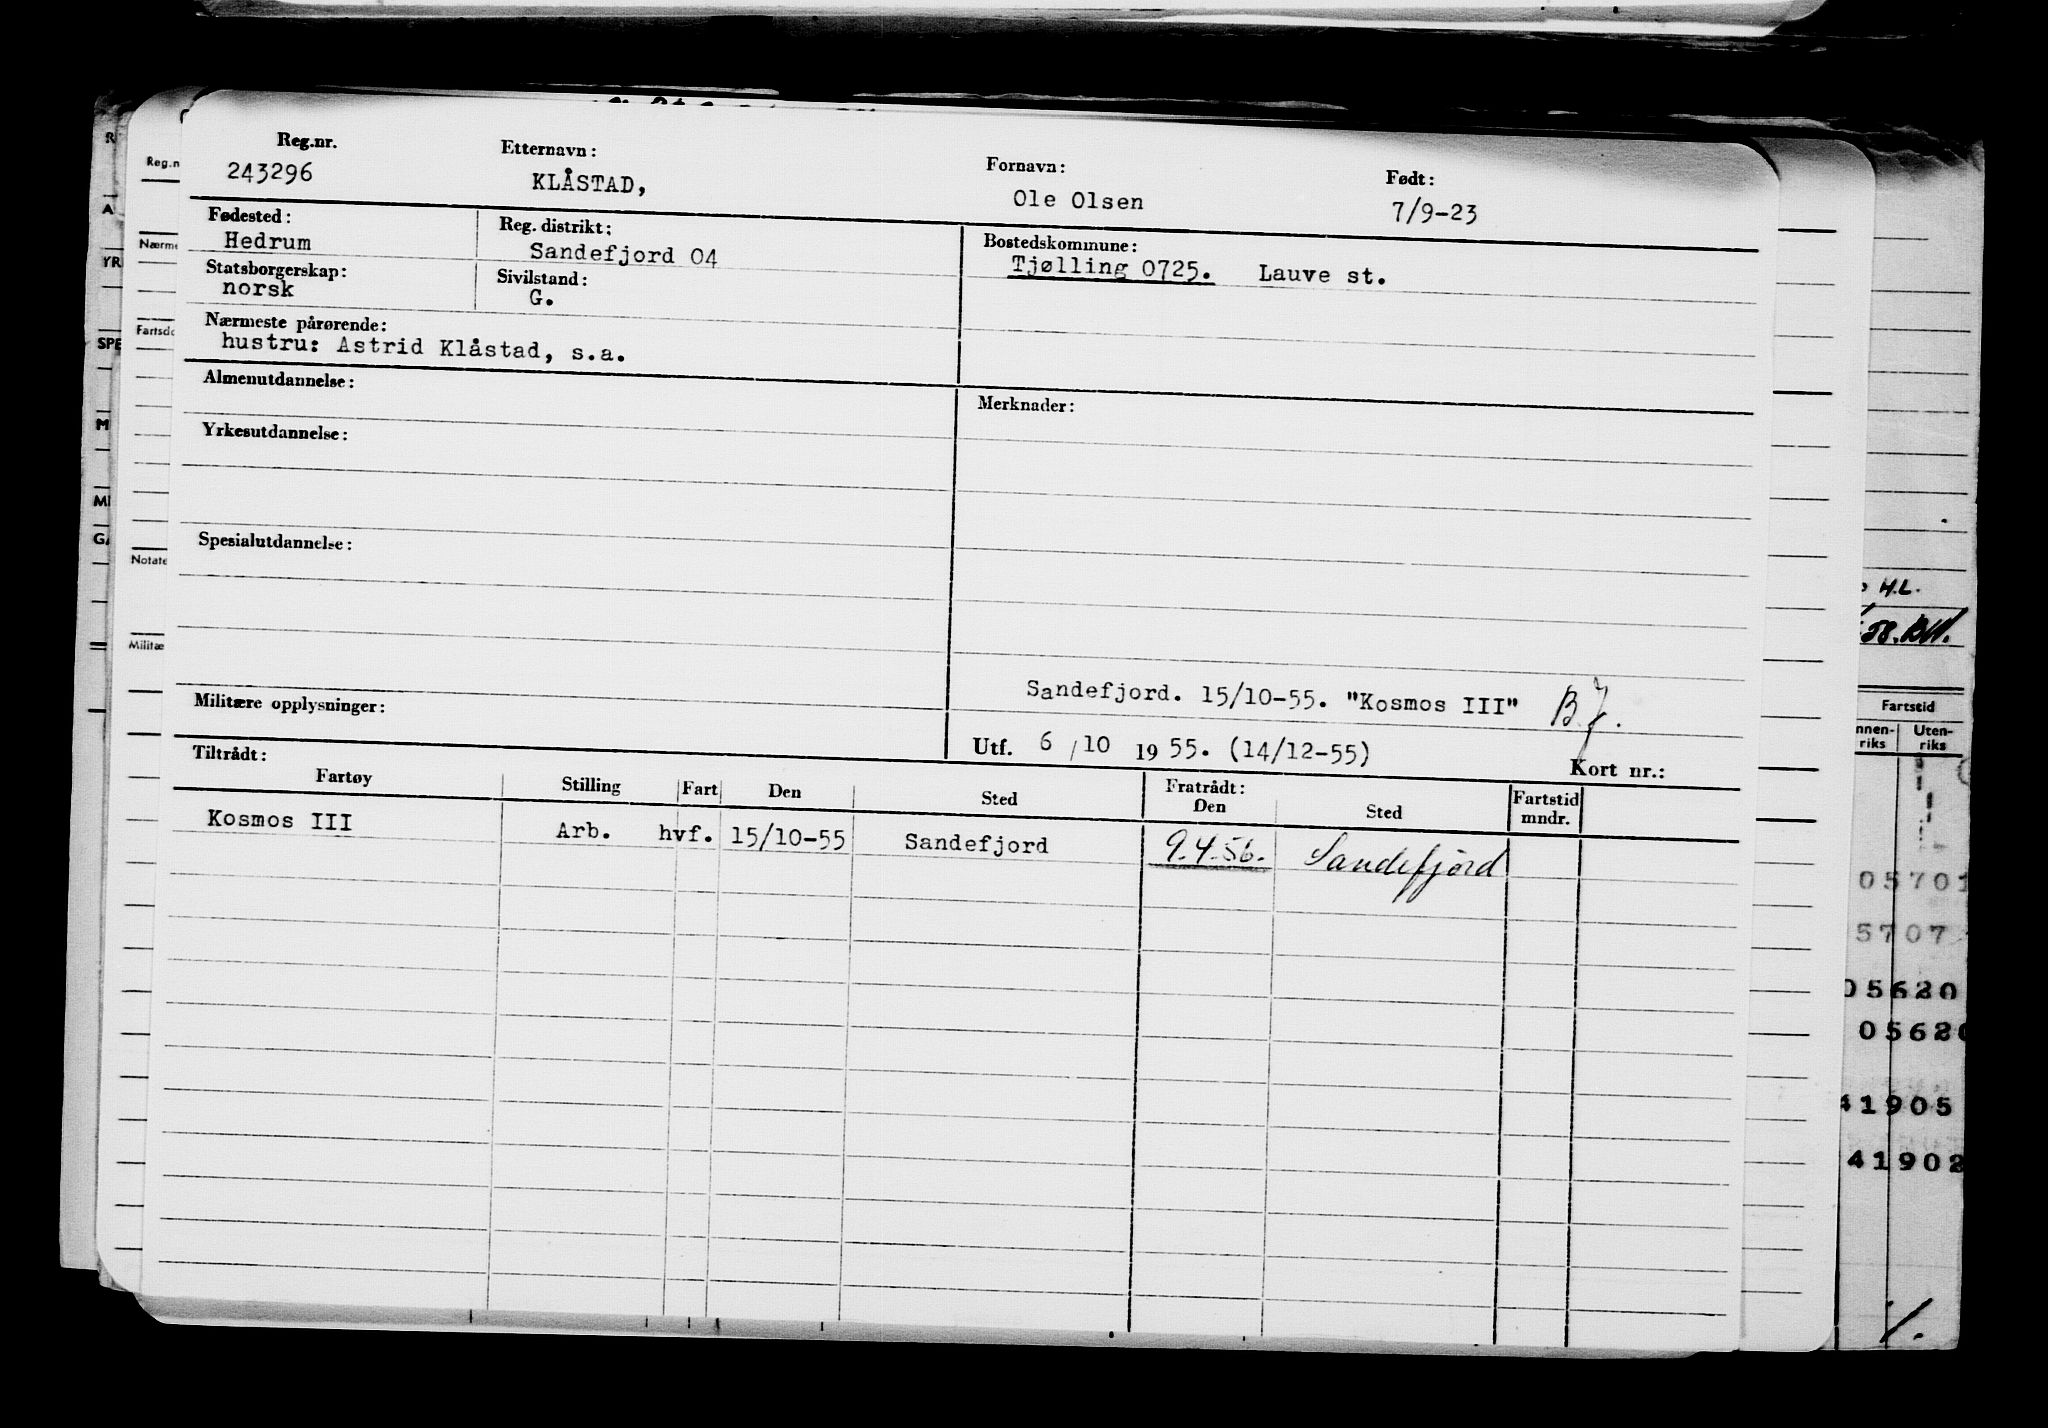 Reg.nr. Etternavn: Fornavn: Født:
243296 KLÅSTAD, Ole Olsen 7/9-23
Fødested: Reg. distrikt: Bostedskommune:
Hedrum Sandefjord 04 Tjølling 0725. Lauve st.
Statsborgerskap: Sivilstand:
norsk G.
Nærmeste pårørende:
hustru: Astrid Klåstad, s.a.
Almenutdannelse: Merknader:
Yrkesutdannelse:
Spesialutdannelse:
Sandefjord. 15/10-55. "Kosmos III" B.J.
Militære opplysninger:
Utf. 6/10 1955. (14/12-55) Kort nr.:
Tiltrådt: Fratrådt:
Fartøy Stilling Fart Den Sted Den Sted Fartstid mndr.
Kosmos III Arb. hvf. 15/10-55 Sandefjord 9.4.56. Sandefjord
Reg.n
Nærme
Fartsdo
Notate
Militæ
R
A
YR
SPE
M
MI
GA
H.L.
58. BW.
Fartstid
nnen-riks Uten-riks
05701
5707
05620
05620
41905
41902